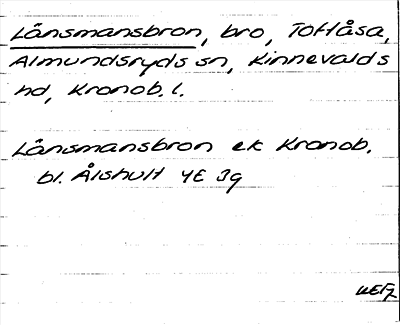 Länsmansbron, bro, Tottåsa,
Almundsryds sn, Kinnevalds
hd, Kronob. l.
Länsmansbron ek Kronob.
bl. Ålshult 4E 3g